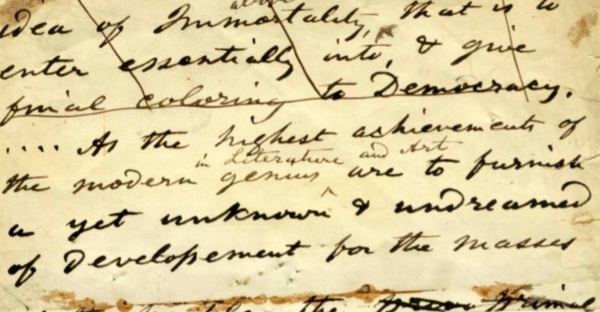 above
idea of Immortality, that is to
enter essentially into, & give
final coloring to Democracy.
.... As the highest achievements of
in Literature and Art
the modern genius ^ are to furnish
a yet unknown & undreamed
of developement for the masses
the primal